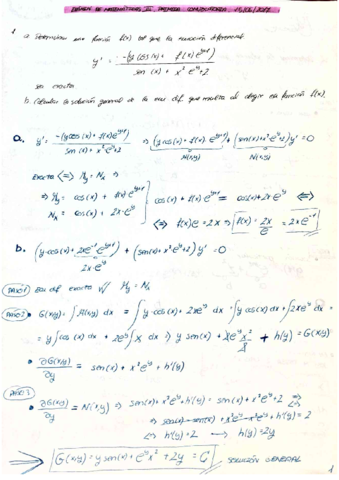 EXAMEN DE MATEMÁTICAS III PRIMERA CONVOCATORIA
1. a. Determinar una función f(x) tal que la ecuación diferencial
y' = -(y cos(x) + f(x) e^{y+1}) / (sen(x) + x² e^y + 2)
sea exacta
b. Calcular la solución general de la ecu. dif. que resulta al elegir esa función f(x).
a. y' = -(y cos(x) + f(x) e^{y+1}) / (sen(x) + x² e^y + 2) ⇒ (y cos(x) + f(x) e^{y+1}) + (sen(x) + x² e^y + 2) y' = 0
M(x,y) N(x,y)
Exacta ⟺ M_y = N_x
⇒ M_y = cos(x) + f(x) e^{y+1}
N_x = cos(x) + 2x·e^y
cos(x) + f(x) e^{y+1} = cos(x) + 2x e^y ⟺
⟺ f(x) e = 2x ⇒ f(x) = 2x/e = 2x e^{-1}
b. (y·cos(x) + 2x e^{-1} e^{y+1}) + (sen(x) + x² e^y + 2) y' = 0
2x·e^y
PASO 1 Ecu dif exacta √ M_y = N_x
PASO 2 • G(x,y) = ∫ M(x,y) dx = ∫ y·cos(x) + 2x e^y dx = ∫ y cos(x) dx + ∫ 2x e^y dx =
= y ∫ cos(x) dx + 2e^y ∫ x dx ⇒ y sen(x) + 2e^y x²/2 + h(y) = G(x,y)
• ∂G(x,y)/∂y = sen(x) + x² e^y + h'(y)
PASO 3 • ∂G(x,y)/∂y = N(x,y) ⇒ sen(x) + x² e^y + h'(y) = sen(x) + x² e^y + 2 ⟺
⇒ sen(x) - sen(x) + x² e^y - x² e^y + h'(y) = 2
⟺ h'(y) = 2 → h(y) = 2y
⇒ G(x,y) = y sen(x) + e^y x² + 2y = C SOLUCIÓN GENERAL
1